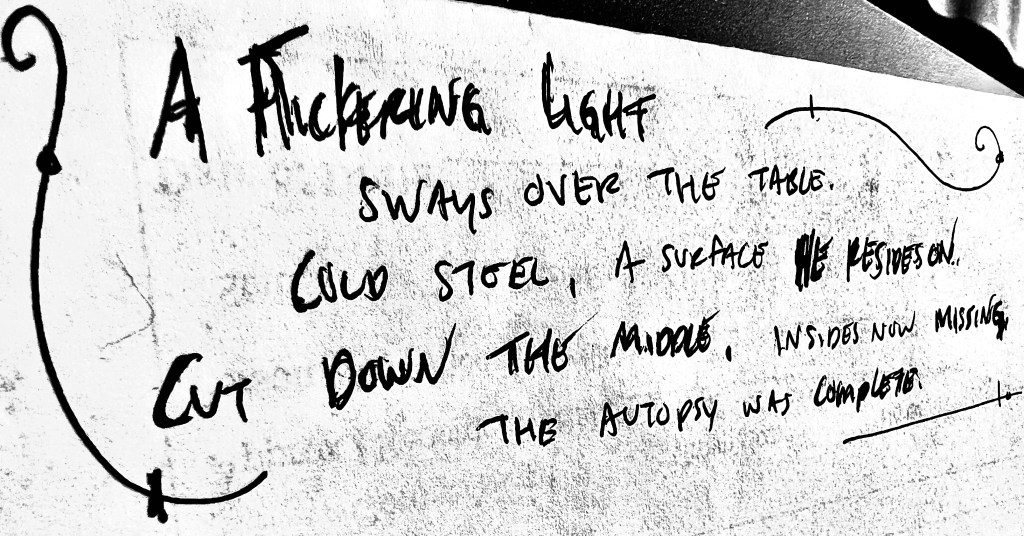 A FLICKERING LIGHT
SWAYS OVER THE TABLE.
COLD STEEL, A SURFACE HE RESIDES ON.
CUT DOWN THE MIDDLE, INSIDES NOW MISSING,
THE AUTOPSY WAS COMPLETE.